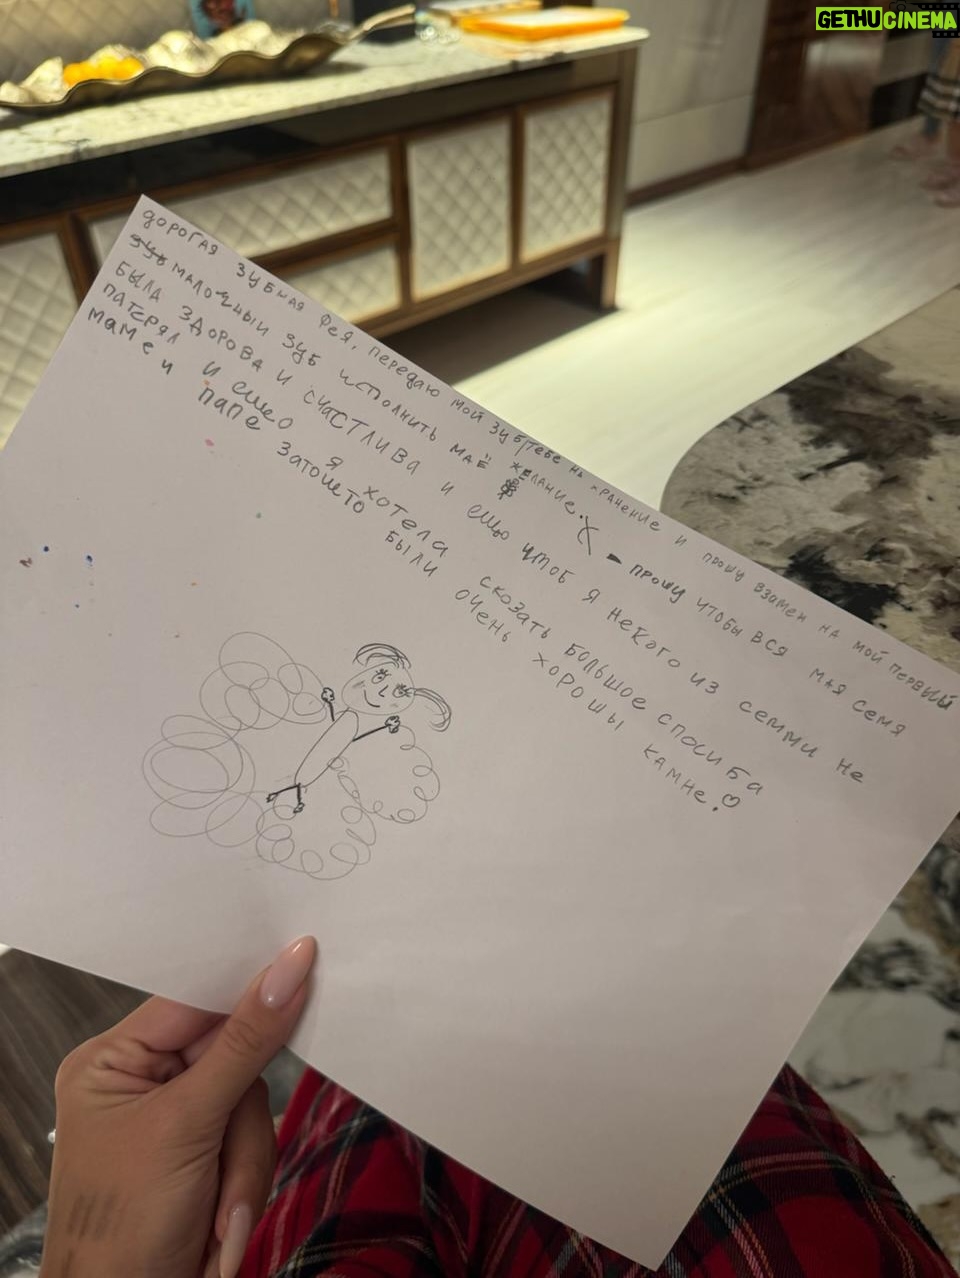 GETHUCINEMA
дорогая зубная фея, передаю мой зуб тебе на хранение и прошу взамен на мой первый
зуб малочный зуб исполнить маё желание. - прошу чтобы вся мая семя
была здорова и счастлива и ещо чтоб я некого из семми не
патерял и ещо я хотела сказать большое спосиба
маме и папе затошто были очень хорошы камне.